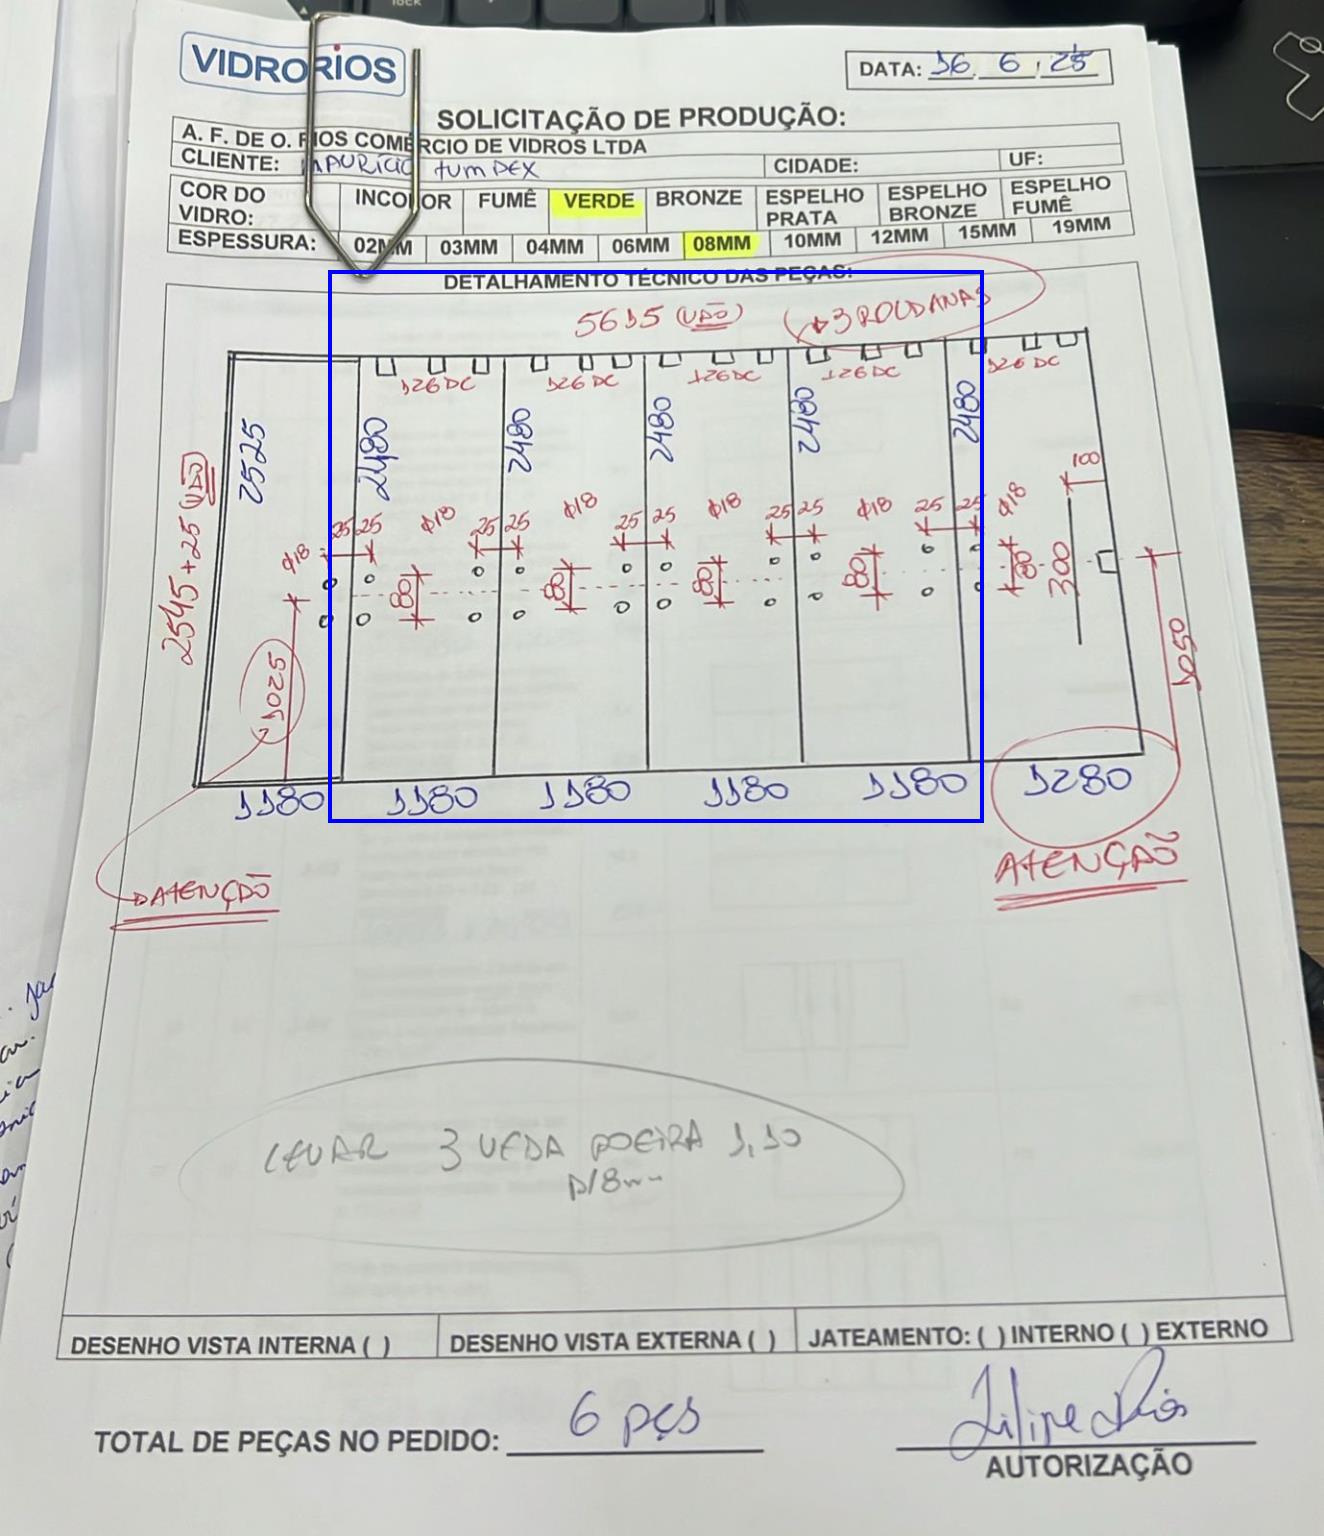 VIDRORIOS
DATA: 16 6 25
SOLICITAÇÃO DE PRODUÇÃO:
A. F. DE O. RIOS COMÉRCIO DE VIDROS LTDA
CLIENTE: MAURICIO tumDEX CIDADE: UF:
COR DO VIDRO: INCOLOR FUMÊ VERDE BRONZE ESPELHO PRATA ESPELHO BRONZE ESPELHO FUMÊ
ESPESSURA: 02MM 03MM 04MM 06MM 08MM 10MM 12MM 15MM 19MM
DETALHAMENTO TÉCNICO DAS PEÇAS:
5615 (VÃO) 3 ROLDANAS
126 DC 126 DC 126 DC 126 DC 126 DC
2525 2480 2480 2480 2480 2480
2545 + 25 (VÃO)
100
25 25 25 25 25 25 25 25 25 25
Φ18 Φ18 Φ18 Φ18 Φ18 Φ18
80 80 80 80 80 300
1025 1050
1180 1180 1180 1180 1180 1280
ATENÇÃO ATENÇÃO
LEVAR 3 VEDA POEIRA 1,10
P/8mm
DESENHO VISTA INTERNA ( ) DESENHO VISTA EXTERNA ( ) JATEAMENTO: ( ) INTERNO ( ) EXTERNO
TOTAL DE PEÇAS NO PEDIDO: 6 pçs
Filipe Rios
AUTORIZAÇÃO